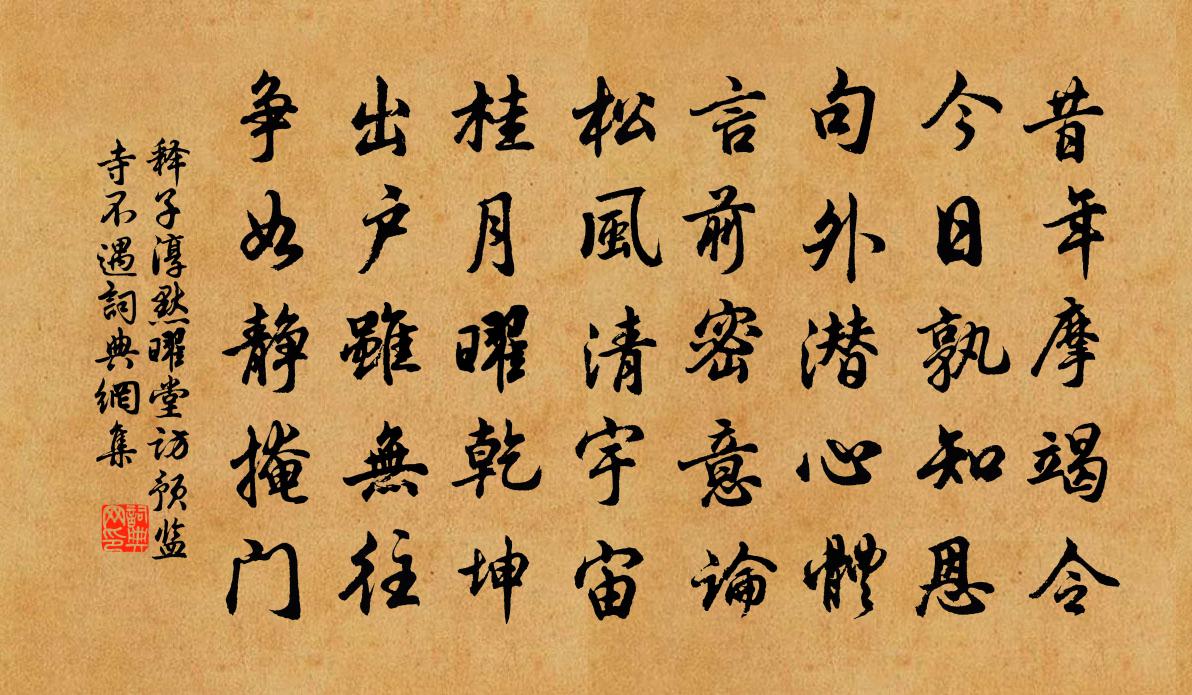 昔年摩竭令
今日孰知恩
句外潜心體
言前密意論
松風清宇宙
桂月曜乾坤
出户雖無往
争如静掩门
释子淳默曜堂访预监
寺不遇詞典網集
詞典网印